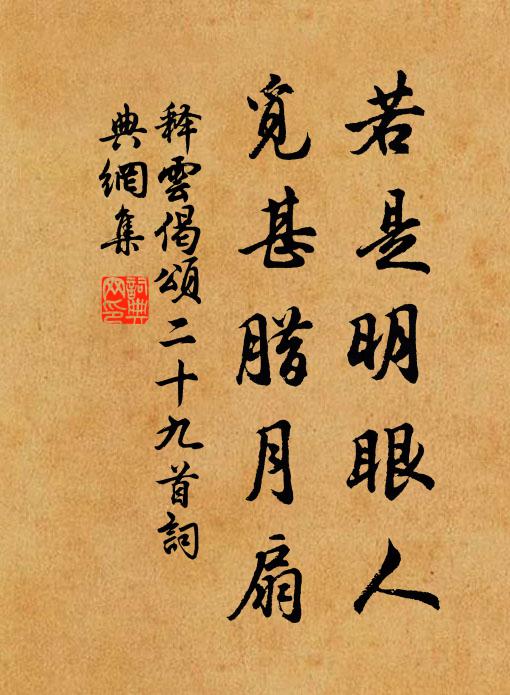 若是明眼人
覓甚腊月扇
释雲偈頌二十九首詞
典網集
詞典
网印